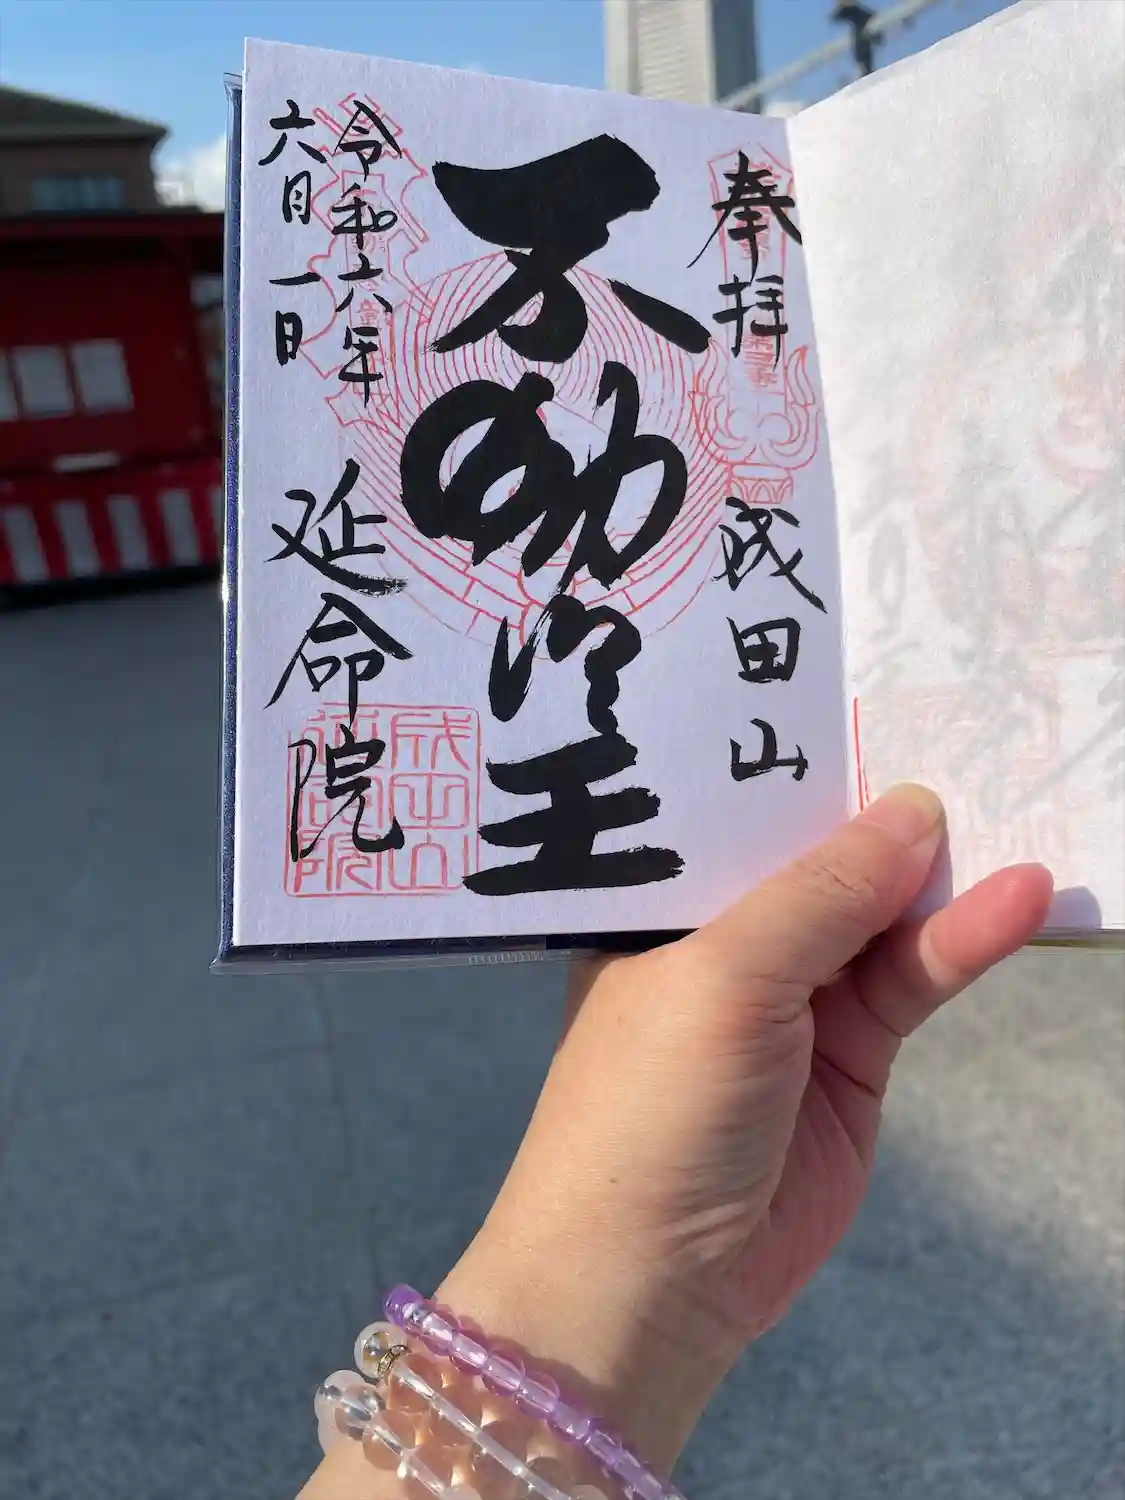 奉拝
成田山
不動明王
令和六年
六月一日
延命院
成田山
延命院